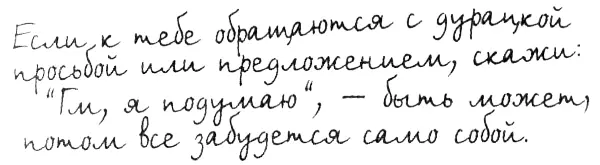 Если к тебе обращаются с дурацкой
просьбой или предложением, скажи:
"Гм, я подумаю", – быть может,
потом все забудется само собой.